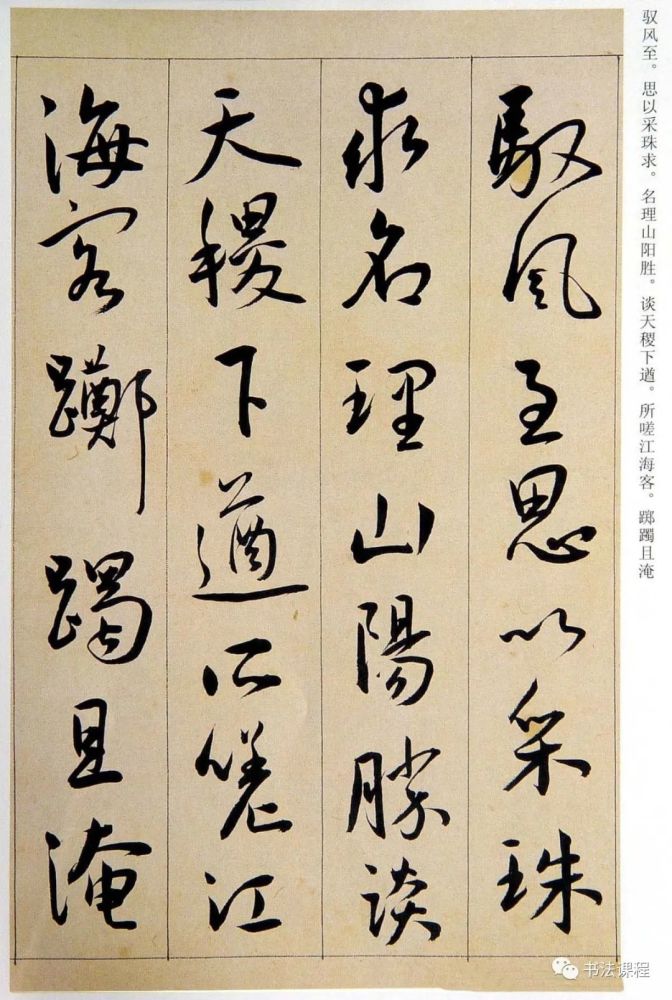 馭風至思以采珠
求名理山陽勝談
天稷下遒所嗟江
海客躑躅且淹
驭风至。思以采珠求。名理山阳胜。谈天稷下遒。所嗟江海客。踯躅且淹
书法课程